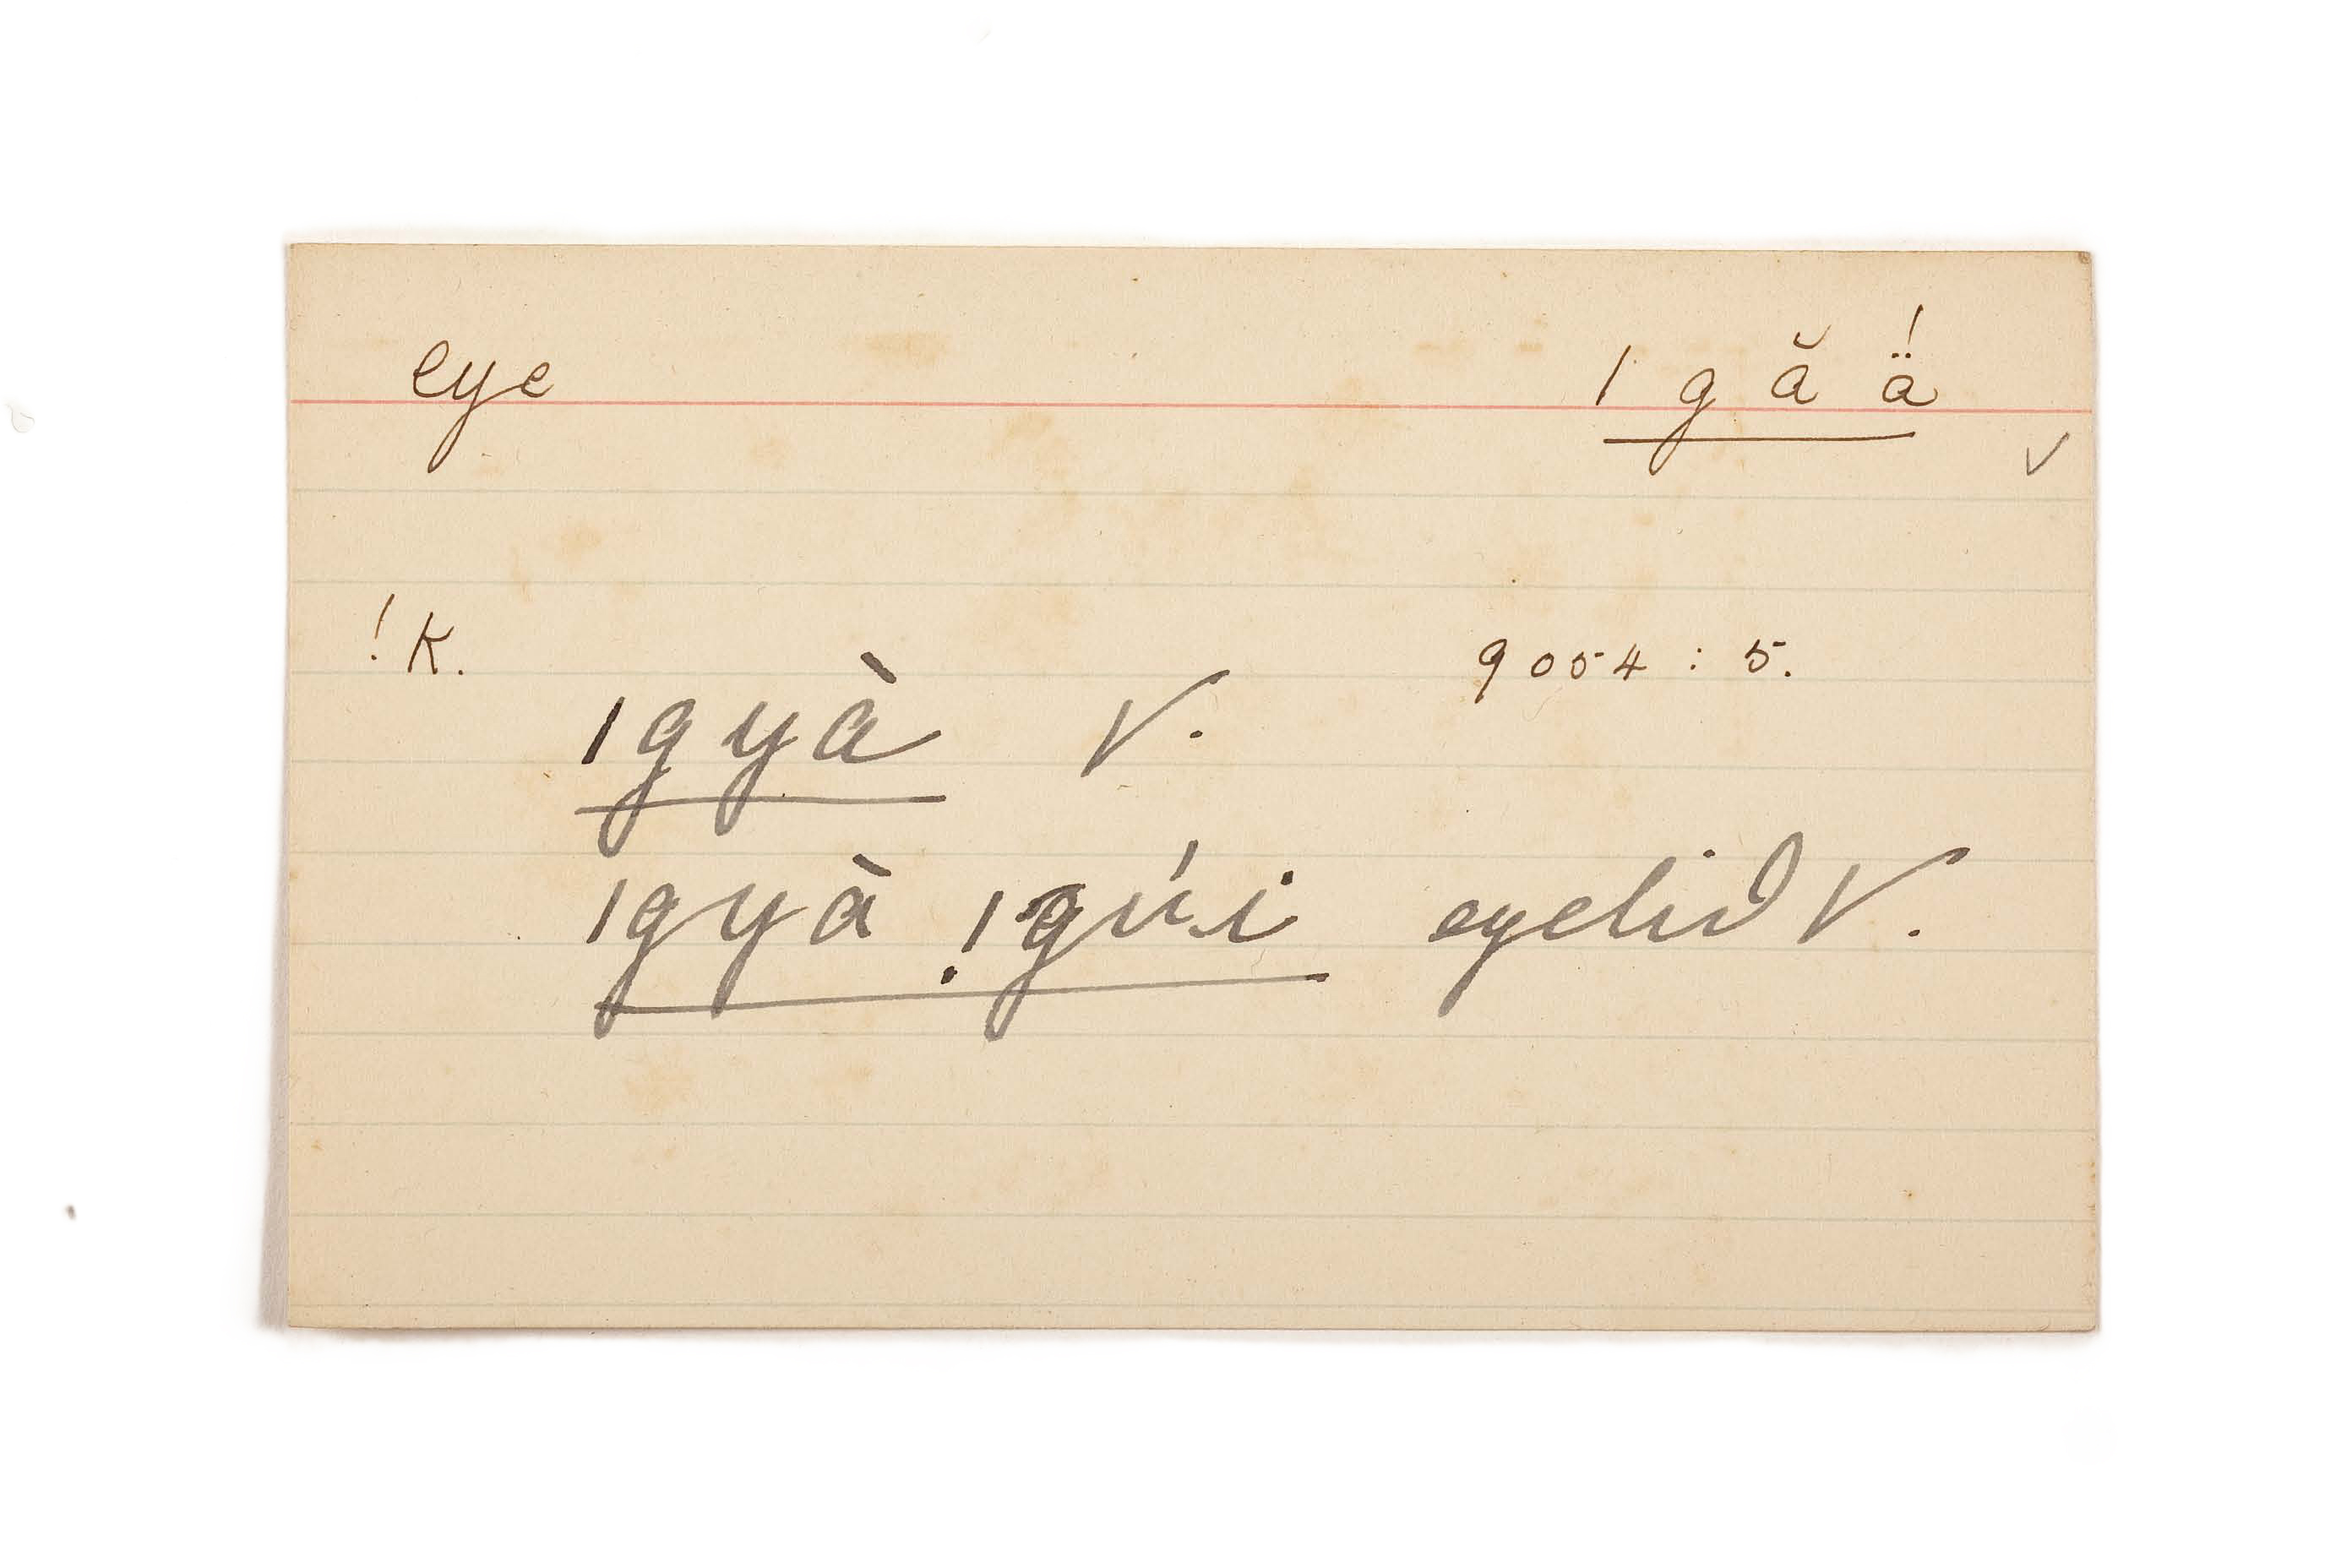 eye ǀ gă ä́ ✓
!K. 9054 : 5.
ǀgyà V.
ǀgyà !gú.i eyelid V.